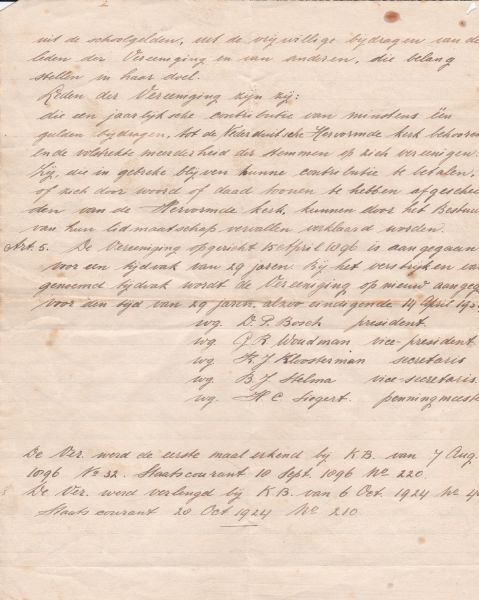 uit de schoolgelden, uit de vrijwillige bijdragen van de
leden der Vereeniging en van anderen, die belang
stellen in haar doel.
Leden der Vereeniging zijn zij:
die een jaarlijksche contributie van minstens één
gulden bijdragen, tot de Nederduitsche Hervormde kerk behooren
en de volstrekte meerderheid der stemmen op zich vereenigen.
Zij, die in gebreke blijven hunne contributie te betalen,
of zich door woord of daad toonen te hebben afgeschei
den van de Hervormde kerk, kunnen door het Bestuur
van hun lidmaatschap vervallen verklaard worden.
Art. 5. De Vereeniging opgericht 15 April 1896 is aangegaan
voor een tijdvak van 29 jaren. Bij het verstrijken van
genoemd tijdvak wordt de Vereeniging op nieuw aangeg
voor den tijd van 29 jaren, alzoo eindigende 14 April 195
wg. D. P. Bosch president.
wg. J. R. Woudman vice-president.
wg. H. J. Kloosterman secretaris
wg. B. J. Stelma vice-secretaris.
wg. H. C. Siegert. penningmeeste
De Ver. werd de eerste maal erkend bij K.B. van 7 Aug.
1896 No 32. Staatscourant 18 Sept. 1896 No 220.
De Ver. werd verlengd bij K.B. van 6 Oct. 1924 No 4
Staatscourant 28 Oct 1924 No 210.